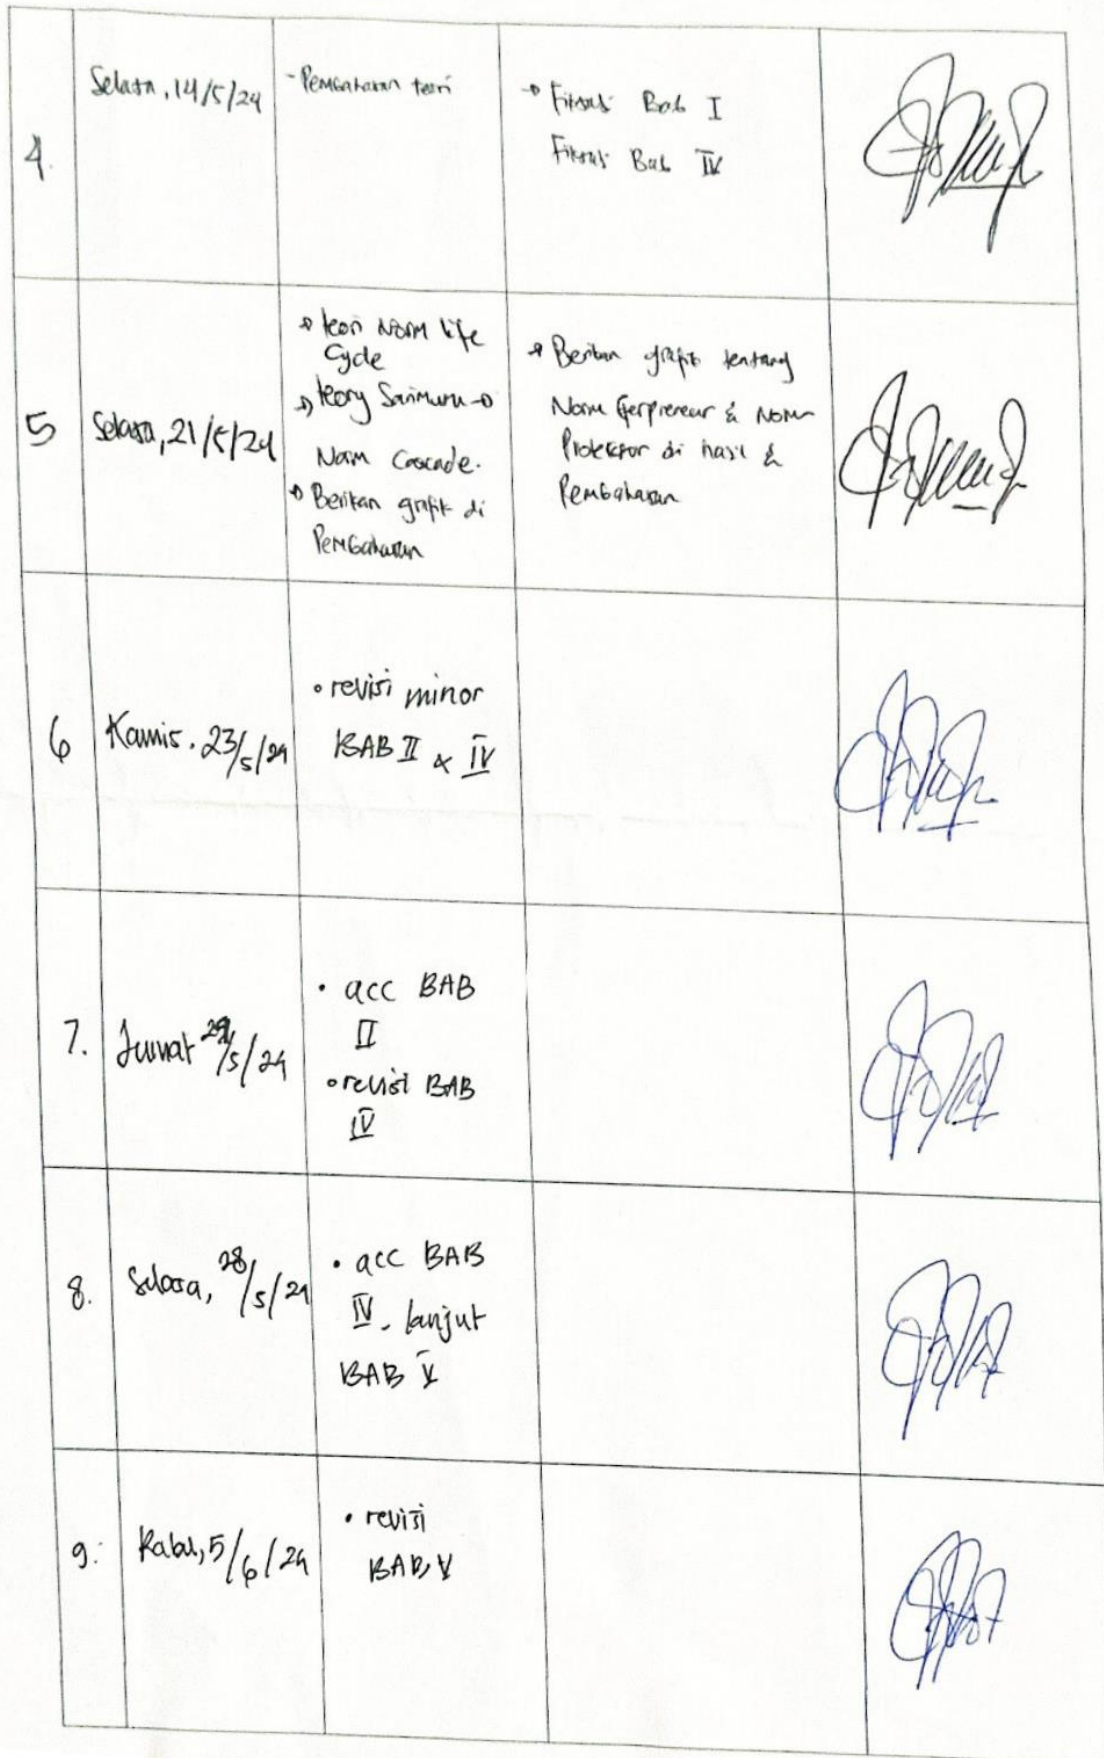 4.
Selasa, 14/5/24
- Pembahasan teori
Bab I
Bab IV
5
Selasa, 21/5/24
teori Norm life
Cycle
teory
Norm Cascade.
Berikan grafik di
Pembahasan
Berikan grafik tentang
Norm & Norm
Protektor di hasil &
Pembahasan
6
Kamis. 23/5/24
• revisi minor
BAB II & IV
7.
Jumat /5/24
• acc BAB
II
• revisi BAB
IV
8.
Selasa, 28/5/24
• acc BAB
IV. lanjut
BAB V
9.
Rabu, 5/6/24
• revisi
BAB V